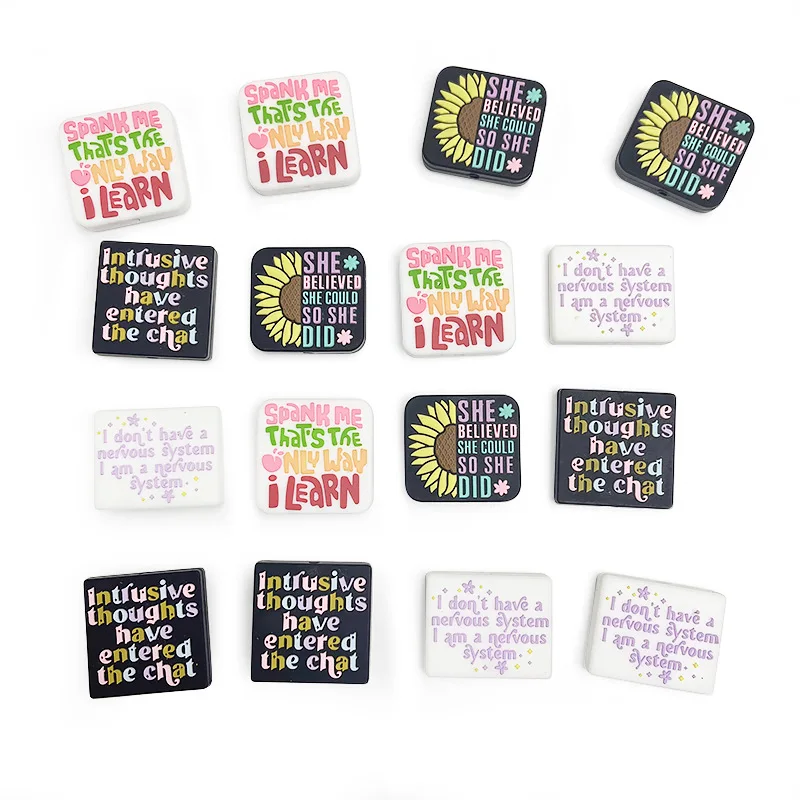 SPANK ME
THAT'S THE
ONLY WAY
i LEARN
SPANK ME
THAT'S THE
ONLY WAY
i LEARN
SHE
BELIEVED
SHE COULD
SO SHE
DID
SHE
BELIEVED
SHE COULD
SO SHE
DID
Intrusive
thoughts
have
entered
the chat
SHE
BELIEVED
SHE COULD
SO SHE
DID
SPANK ME
THAT'S THE
ONLY WAY
i LEARN
I don't have a
nervous system
I am a nervous
system.
I don't have a
nervous system
I am a nervous
system.
SPANK ME
THAT'S THE
ONLY WAY
i LEARN
SHE
BELIEVED
SHE COULD
SO SHE
DID
Intrusive
thoughts
have
entered
the chat
Intrusive
thoughts
have
entered
the chat
Intrusive
thoughts
have
entered
the chat
I don't have a
nervous system
I am a nervous
system.
I don't have a
nervous system
I am a nervous
system.